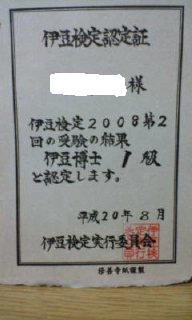 伊豆検定認定証
様
伊豆検定2008第2
回の受験の結果
伊豆博士 1 級
と認定します。
平成20年8月
伊豆検定実行委員会
修善寺紙謹製